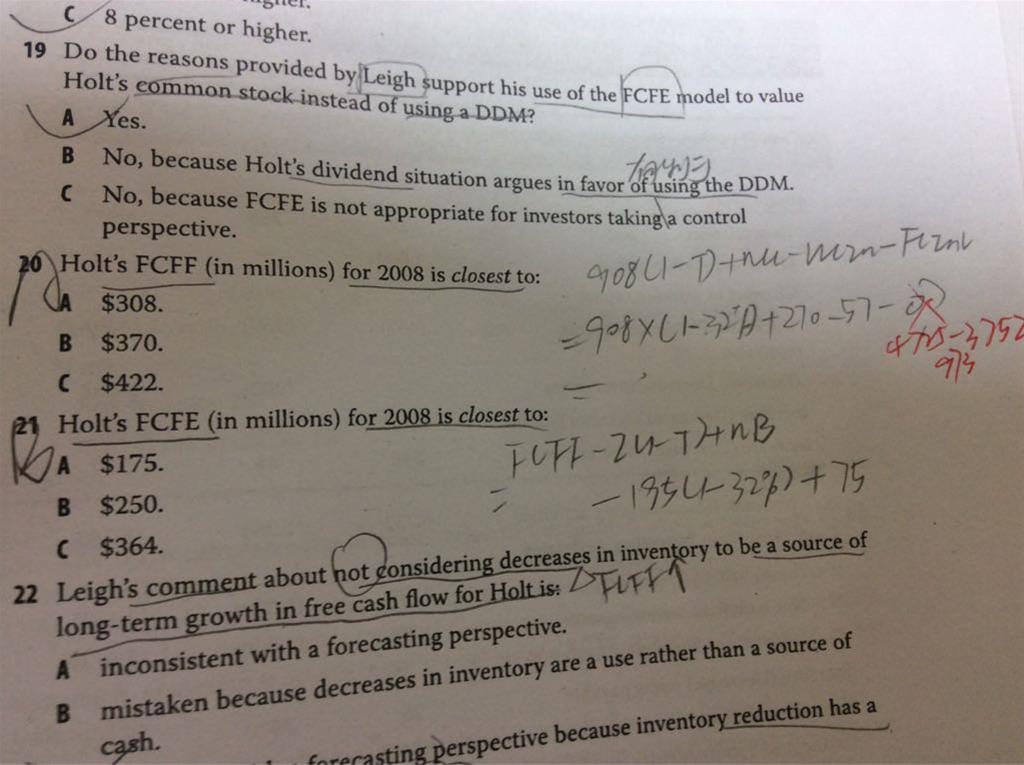 C 8 percent or higher.
19 Do the reasons provided by Leigh support his use of the FCFE model to value
Holt's common stock instead of using a DDM?
A Yes.
B No, because Holt's dividend situation argues in favor of using the DDM.
C No, because FCFE is not appropriate for investors taking a control
perspective.
20 Holt's FCFF (in millions) for 2008 is closest to:
908(1-T)+
A $308.
=908×(1-32%)+270-57-
B $370.
C $422.
21 Holt's FCFE (in millions) for 2008 is closest to:
A $175.
B $250.
-195(1-32%)+75
C $364.
22 Leigh's comment about not considering decreases in inventory to be a source of
long-term growth in free cash flow for Holt is:
FCFF↑
A inconsistent with a forecasting perspective.
B mistaken because decreases in inventory are a use rather than a source of
cash.
forecasting perspective because inventory reduction has a